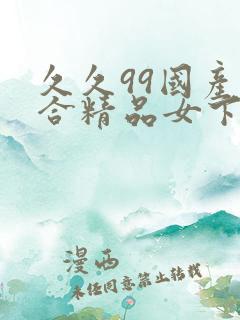 久久99國產
合精品女下
漫西
未经同意禁止转载